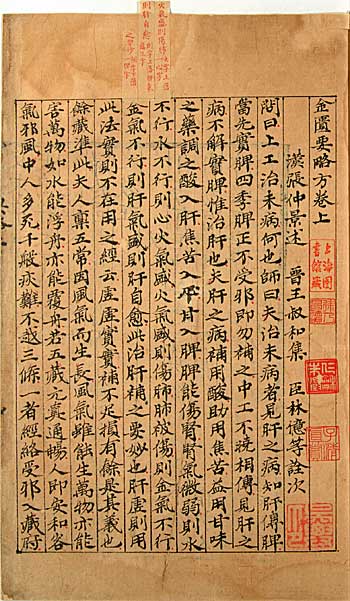 金匱要略方卷上
漢張仲景述 晉王叔和集 臣林億等詮次
問曰上工治未病何也師曰夫治未病者見肝之病知肝傳脾
當先實脾四季脾正不受邪即勿補之中工不曉相傳見肝之
病不解實脾惟治肝也夫肝之病補用酸助用焦苦益用甘味
之藥調之酸入肝焦苦入甘入脾脾能傷腎腎氣微弱則水
不行水不行則心火氣盛火氣盛則傷肺肺被傷則金氣不行
金氣不行則肝氣盛則肝自愈此治肝補之要妙也肝虛則用
此法實則不在用之經云虛虛實實補不足損有餘是其義也
餘藏準此夫人稟五常因風氣而生長風氣雖能生萬物亦能
害萬物如水能浮舟亦能覆舟若五藏元真通暢人即安和客
氣邪風中人多死千般疢難不越三條一者經絡受邪入藏府
上海圖書館藏